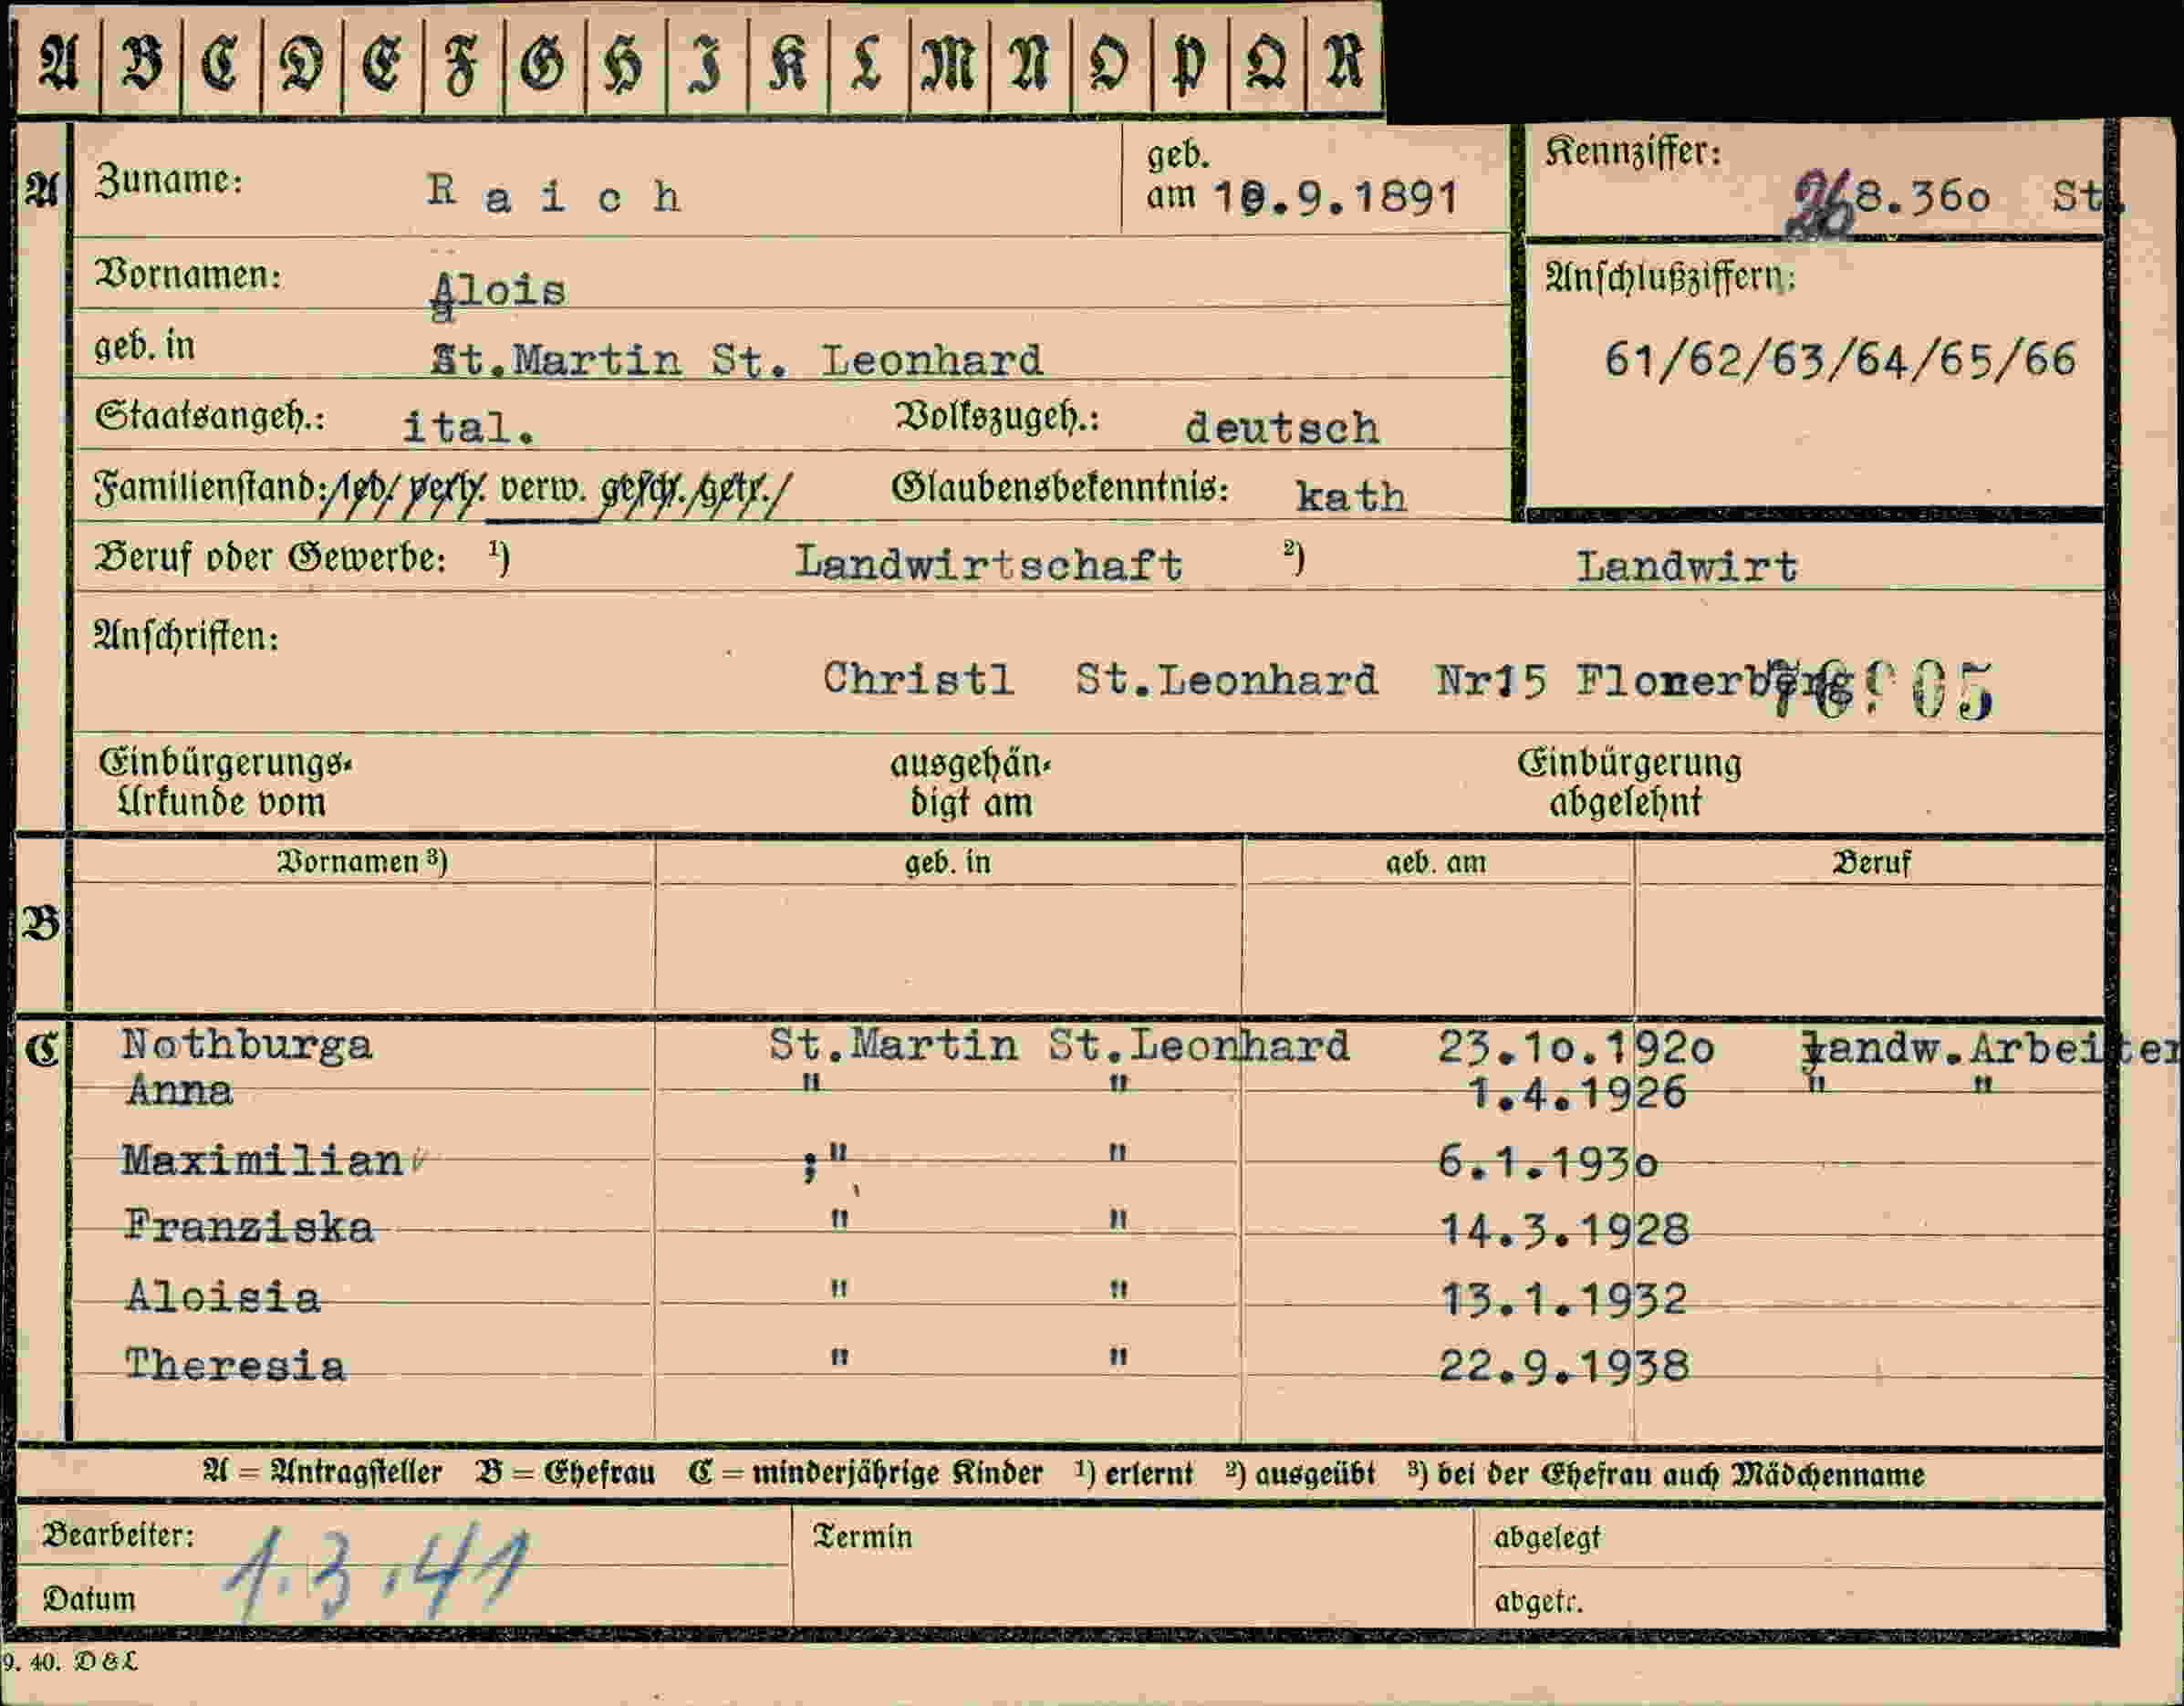 A B C D E F G H I K L M N O P Q R
A Zuname: Raich geb. am 10.9.1891 Kennziffer: 268.36o St.
Vornamen: Alois Anschlußziffern:
geb. in St.Martin St. Leonhard 61/62/63/64/65/66
Staatsangeh.: ital. Volkszugeh.: deutsch
Familienstand: led. verh. verw. gesch. getr. Glaubensbekenntnis: kath
Beruf oder Gewerbe: ¹) Landwirtschaft ²) Landwirt
Anschriften:
Christl St.Leonhard Nr15
Einbürgerungs- Urkunde vom ausgehän- digt am Einbürgerung abgelehnt
Vornamen ³) geb. in geb. am Beruf
B
C Nothburga St.Martin St.Leonhard 23.1o.192o landw.Arbeiter
Anna " " 1.4.1926 " "
Maximilian ;" " 6.1.193o
Franziska " " 14.3.1928
Aloisia " " 13.1.1932
Theresia " " 22.9.1938
A = Antragsteller B = Ehefrau C = minderjährige Kinder ¹) erlernt ²) ausgeübt ³) bei der Ehefrau auch Mädchenname
Bearbeiter: Termin abgelegt
Datum 1.3.41 abgetr.
9. 40. D & L